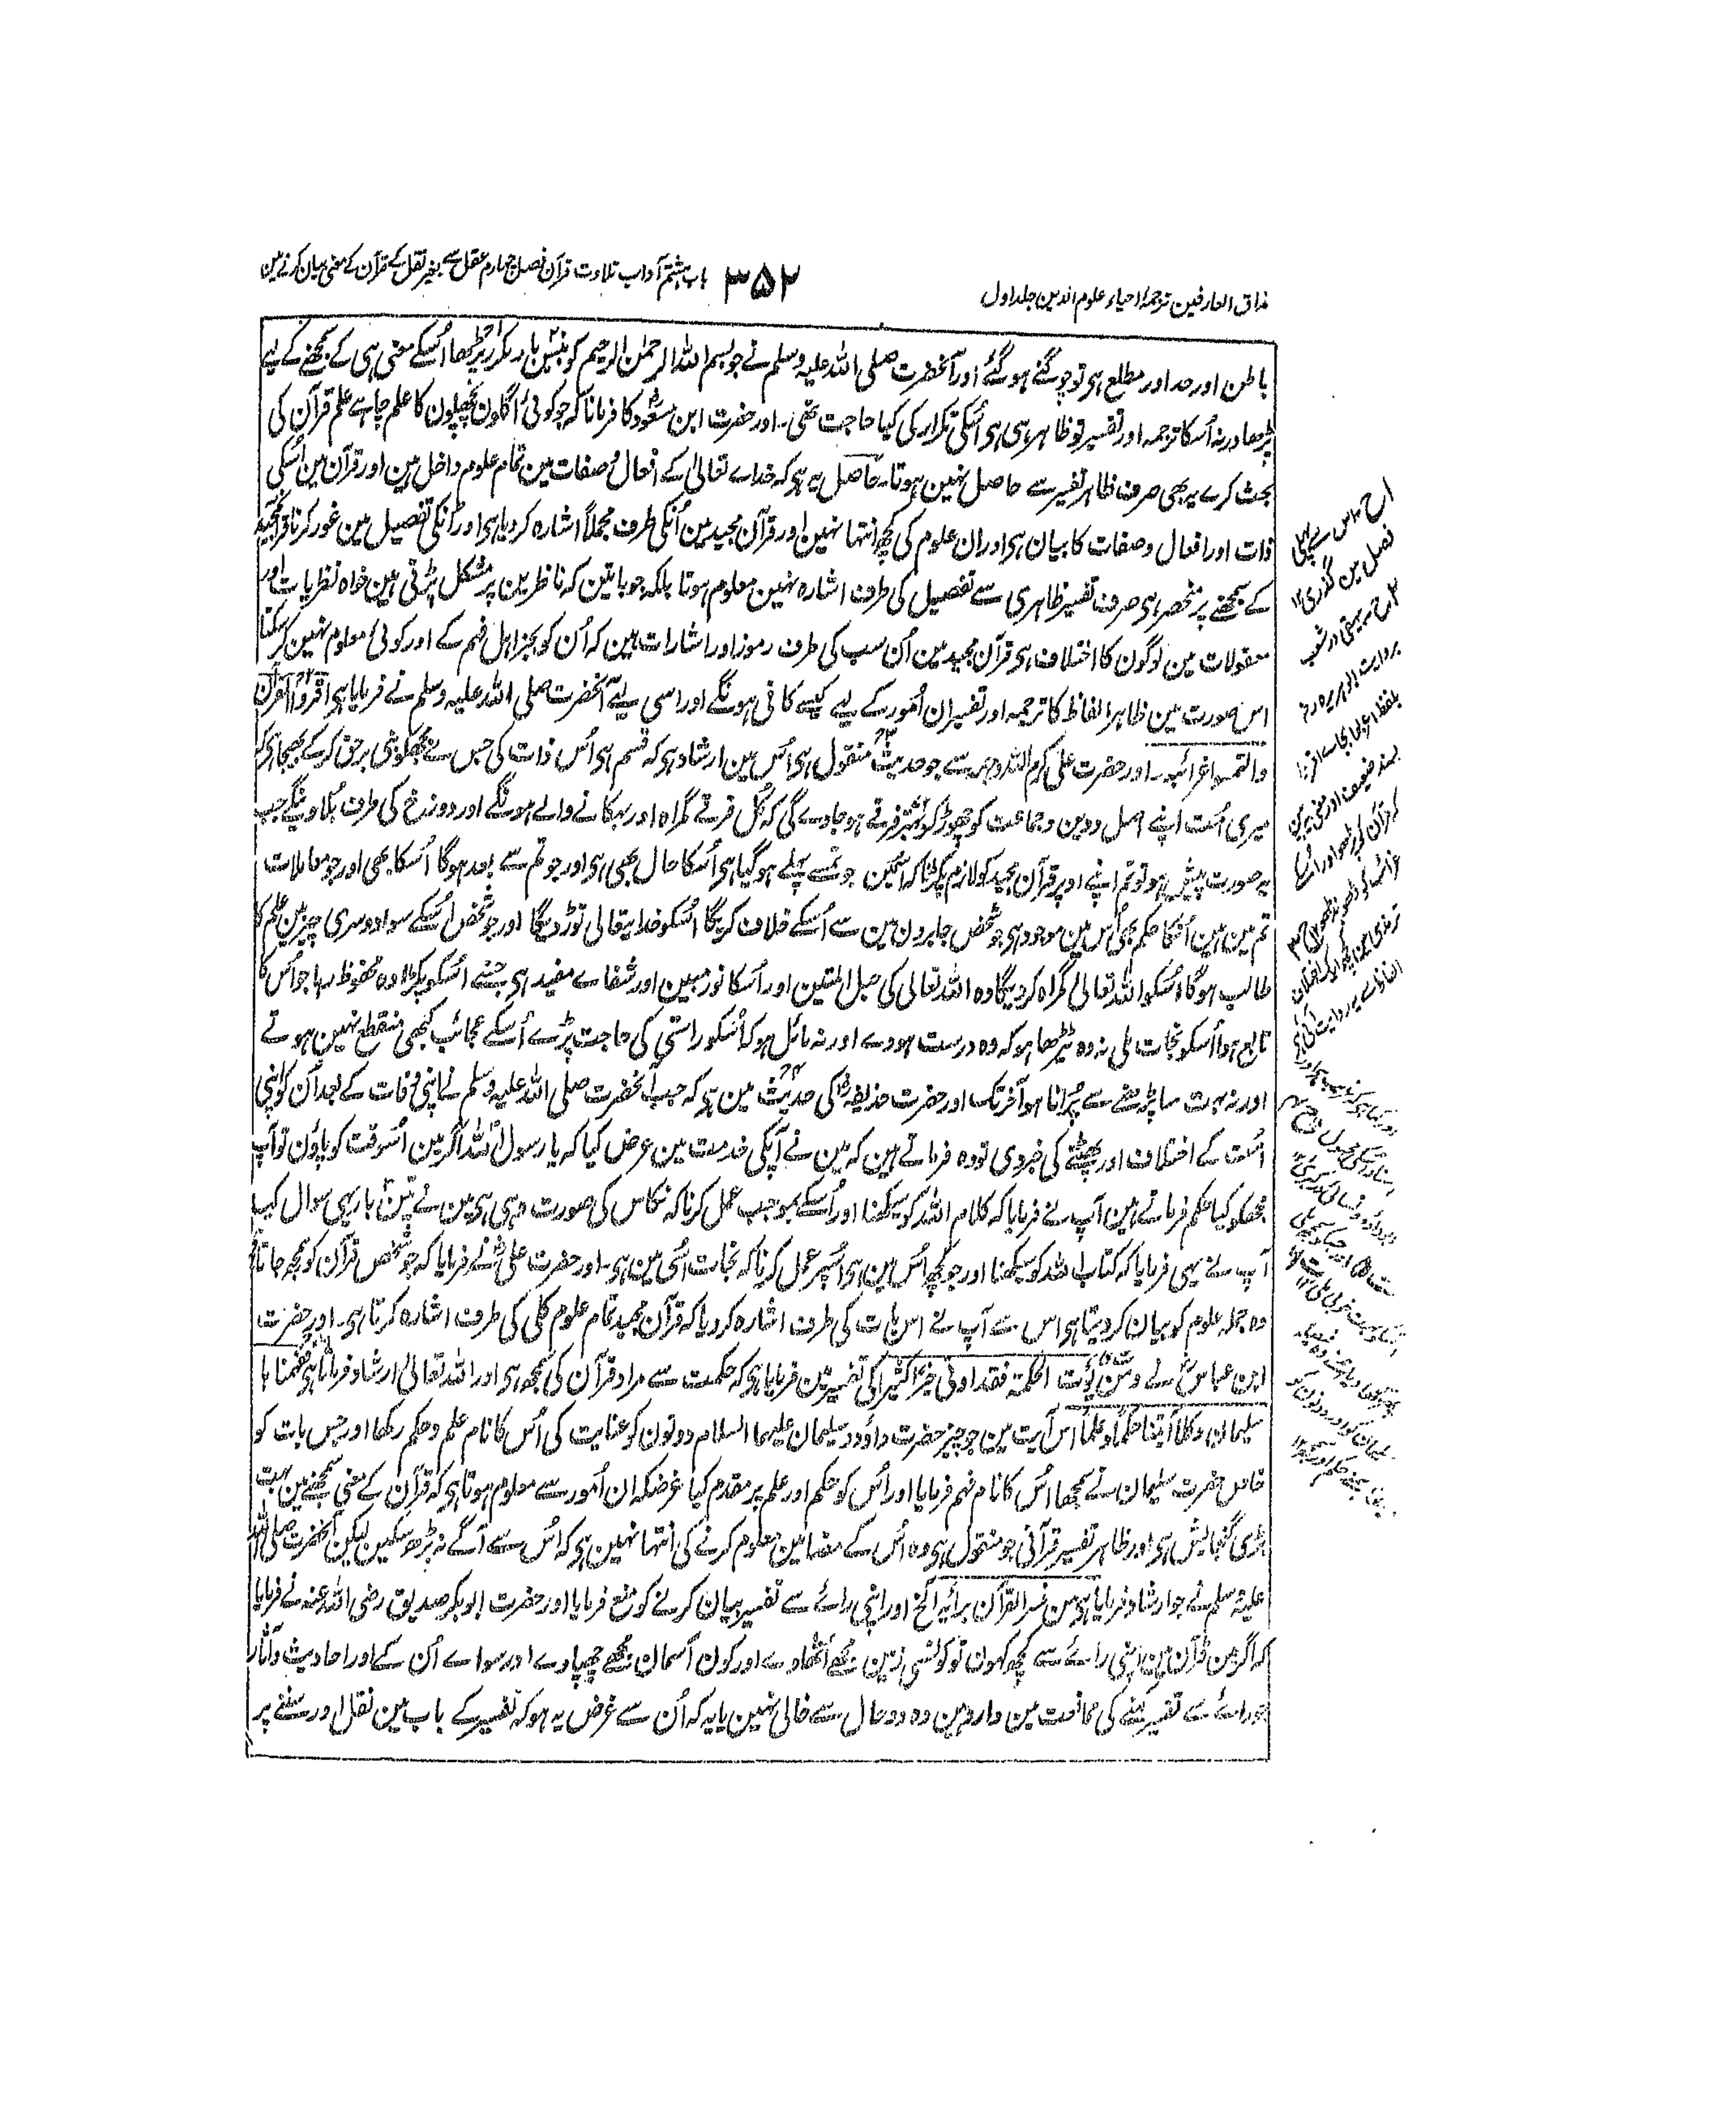 مذاق العارفین ترجمۂ احیاء علوم الدین جلد اول
۳۵۲
باب ہشتم آداب تلاوت قرآن فصل چہارم عقل سے بغیر نقل کے قرآن کے معنی بیان کرنے مین
باطن اور حد اور مطلع ہی تو چوگنے ہوگئے اور آنحضرت صلی اللہ علیہ وسلم نے جو بسم اللہ الرحمٰن الرحیم کو بیس بار مکرر پڑھا اُسکے معنی ہی کے سمجھنے کے لیے
پڑھا ورنہ اُسکا ترجمہ اور تفسیر تو ظاہر ہی ہی اُسکی تکرار کی کیا حاجت تھی۔ اور حضرت ابن مسعودؓ کا فرمانا کہ جو کوئی اگلون پچھلون کا علم چاہے علم قرآن کی
بحث کرے یہ بھی صرف ظاہر تفسیر سے حاصل نہین ہوتا۔ حاصل یہ ہی کہ خداے تعالیٰ کے افعال و صفات مین تمام علوم داخل ہین اور قرآن مین اُسکی
ذات اور افعال و صفات کا بیان ہی اور ان علوم کی کچھ انتہا نہین اور قرآن مجید مین اُنکی طرف مجملاً اشارہ کر دیا ہی اور اُنکی تفصیل مین غور کرنا قرآن مجید
کے سمجھنے پر منحصر ہی صرف تفسیر ظاہری سے تفصیل کی طرف اشارہ نہین معلوم ہوتا بلکہ جو باتین کہ ناظرین پر مشکل پڑتی ہین خواہ نظریات اور
معقولات مین لوگون کا اختلاف ہی قرآن مجید مین اُن سب کی طرف رموز اور اشارات ہین کہ اُن کو بجز اہل فہم کے اور کوئی معلوم نہین کر سکتا
اس صورت مین ظاہر الفاظ کا ترجمہ اور تفسیر ان اُمور کے لیے کیسے کافی ہونگے اور اسی لیے آنحضرت صلی اللہ علیہ وسلم نے فرمایا ہی اقرؤا القرآن
والتمسوا غرائبہ۔ اور حضرت علی کرم اللہ وجہہ سے جو حدیث منقول ہی اُس مین ارشاد ہی کہ قسم ہی اُس ذات کی جس نے مجھکو نبی برحق کر کے بھیجا ہی کہ
میری اُمت اپنے اصل و دین و جماعت کو چھوڑ کر بہتر فرقے ہو جاوے گی کہ کُل فرقے گمراہ اور بہکانے والے ہونگے اور دوزخ کی طرف بلاوینگے جب
یہ صورت پیش ہو تو تم اپنے اوپر قرآن مجید کو لازم پکڑنا کہ اسمین جو تمسے پہلے ہو گیا ہی اُسکا حال بھی ہی اور جو تم سے بعد ہوگا اُسکا بھی اور جو معاملات
تم مین ہین اُنکا حکم بھی اُس مین موجود ہی جو شخص جابرون مین سے اُسکے خلاف کریگا اُسکو خدا تعالی توڑ دیگا اور جو شخص اُسکے سوا دوسری چیز مین علم کا
طالب ہوگا اُسکو اللہ تعالی گمراہ کر دیگا وہ اللہ تعالی کی حبل المتین اور اُسکا نور مبین اور شفاے مفید ہی جسنے اُسکو پکڑا وہ محفوظ رہا جو اُس کا
تابع ہوا اُسکو نجات ملی نہ وہ ٹیڑھا ہو کہ وہ درست ہووے اور نہ مائل ہو کہ اُسکو راستی کی حاجت پڑے اُسکے عجائب کبھی منقطع نہین ہوتے
اور نہ بہت سا پڑھنے سے پُرانا ہو آخر تک اور حضرت حذیفہؓ کی حدیث مین ہی کہ جب آنحضرت صلی اللہ علیہ وسلم نے اپنی وفات کے بعد اُن کو اپنی
اُمت کے اختلاف اور پھٹنے کی خبر دی تو وہ فرماتے ہین کہ مین نے آپکی خدمت مین عرض کیا کہ یا رسول اللہ اگر مین اُسوقت کو پاؤن تو آپ
مجھکو کیا حکم فرماتے ہین آپ نے فرمایا کہ کلام اللہ کو سیکھنا اور اُسکے بموجب عمل کرنا کہ نکاس کی صورت وہی ہی مین نے تین بار یہی سوال کیا
آپ نے یہی فرمایا کہ کتاب اللہ کو سیکھنا اور جو کچھ اُس مین ہی اُسپر عمل کرنا کہ نجات اُسی مین ہی۔ اور حضرت علیؓ نے فرمایا کہ جو شخص قرآن کو سمجھ جاتا ہی
وہ جملہ علوم کو بیان کر دیتا ہی اس سے آپ نے اس بات کی طرف اشارہ کر دیا کہ قرآن مجید تمام علوم کلی کی طرف اشارہ کرتا ہی۔ اور حضرت
ابن عباسؓ نے ومن یؤت الحکمۃ فقد اوتی خیرا کثیرا کی تفسیر مین فرمایا ہی کہ حکمت سے مراد قرآن کی سمجھ ہی اور اللہ تعالیٰ ارشاد فرماتا ہی ففہمنا ہا
سلیمان وکلا آتینا حکما وعلما اس آیت مین جو چیز حضرت داؤد و سلیمان علیہما السلام دونون کو عنایت کی اُس کا نام علم و حکم رکھا اور جس بات کو
خاص حضرت سلیمان نے سمجھا اُس کا نام فہم فرمایا اور اُس کو حکم اور علم پر مقدم کیا غرضکہ ان اُمور سے معلوم ہوتا ہی کہ قرآن کے معنی سمجھنے مین بہت
بڑی گنجایش ہی اور ظاہر تفسیر قرآنی جو منقول ہی وہ اُس کے مضامین معلوم کرنے کی انتہا نہین ہی کہ اُس سے آگے نہ بڑھ سکین لیکن آنحضرت صلی اللہ
علیہ وسلم نے جو ارشاد فرمایا ہی من فسر القرآن برائیہ الخ اور اپنی رائے سے تفسیر بیان کرنے کو منع فرمایا اور حضرت ابوبکر صدیق رضی اللہ عنہ نے فرمایا
کہ اگر مین قرآن مین اپنی رائے سے کچھ کہون تو کونسی زمین مجھے اُٹھاوے اور کون آسمان مجھے چھپاوے اور سواے اُن کے اور احادیث و آثار
جو رائے سے تفسیر کرنے کی ممانعت مین وارد ہین وہ دو حال سے خالی نہین یا یہ کہ اُن سے غرض یہ ہو کہ تفسیر کے باب مین نقل اور سننے پر
اح اس سے پہلی
فصل مین گذری ۱۲
۲ اح بیہقی در شعب
بروایت ابوہریرہ رض
بلفظ اعربوا بجاے اقرؤا
بسند ضعیف اور معنی یہ ہین
کہ قرآن کو پڑھو اور اُسکے
غرائب کو ڈھونڈھو ۱۲